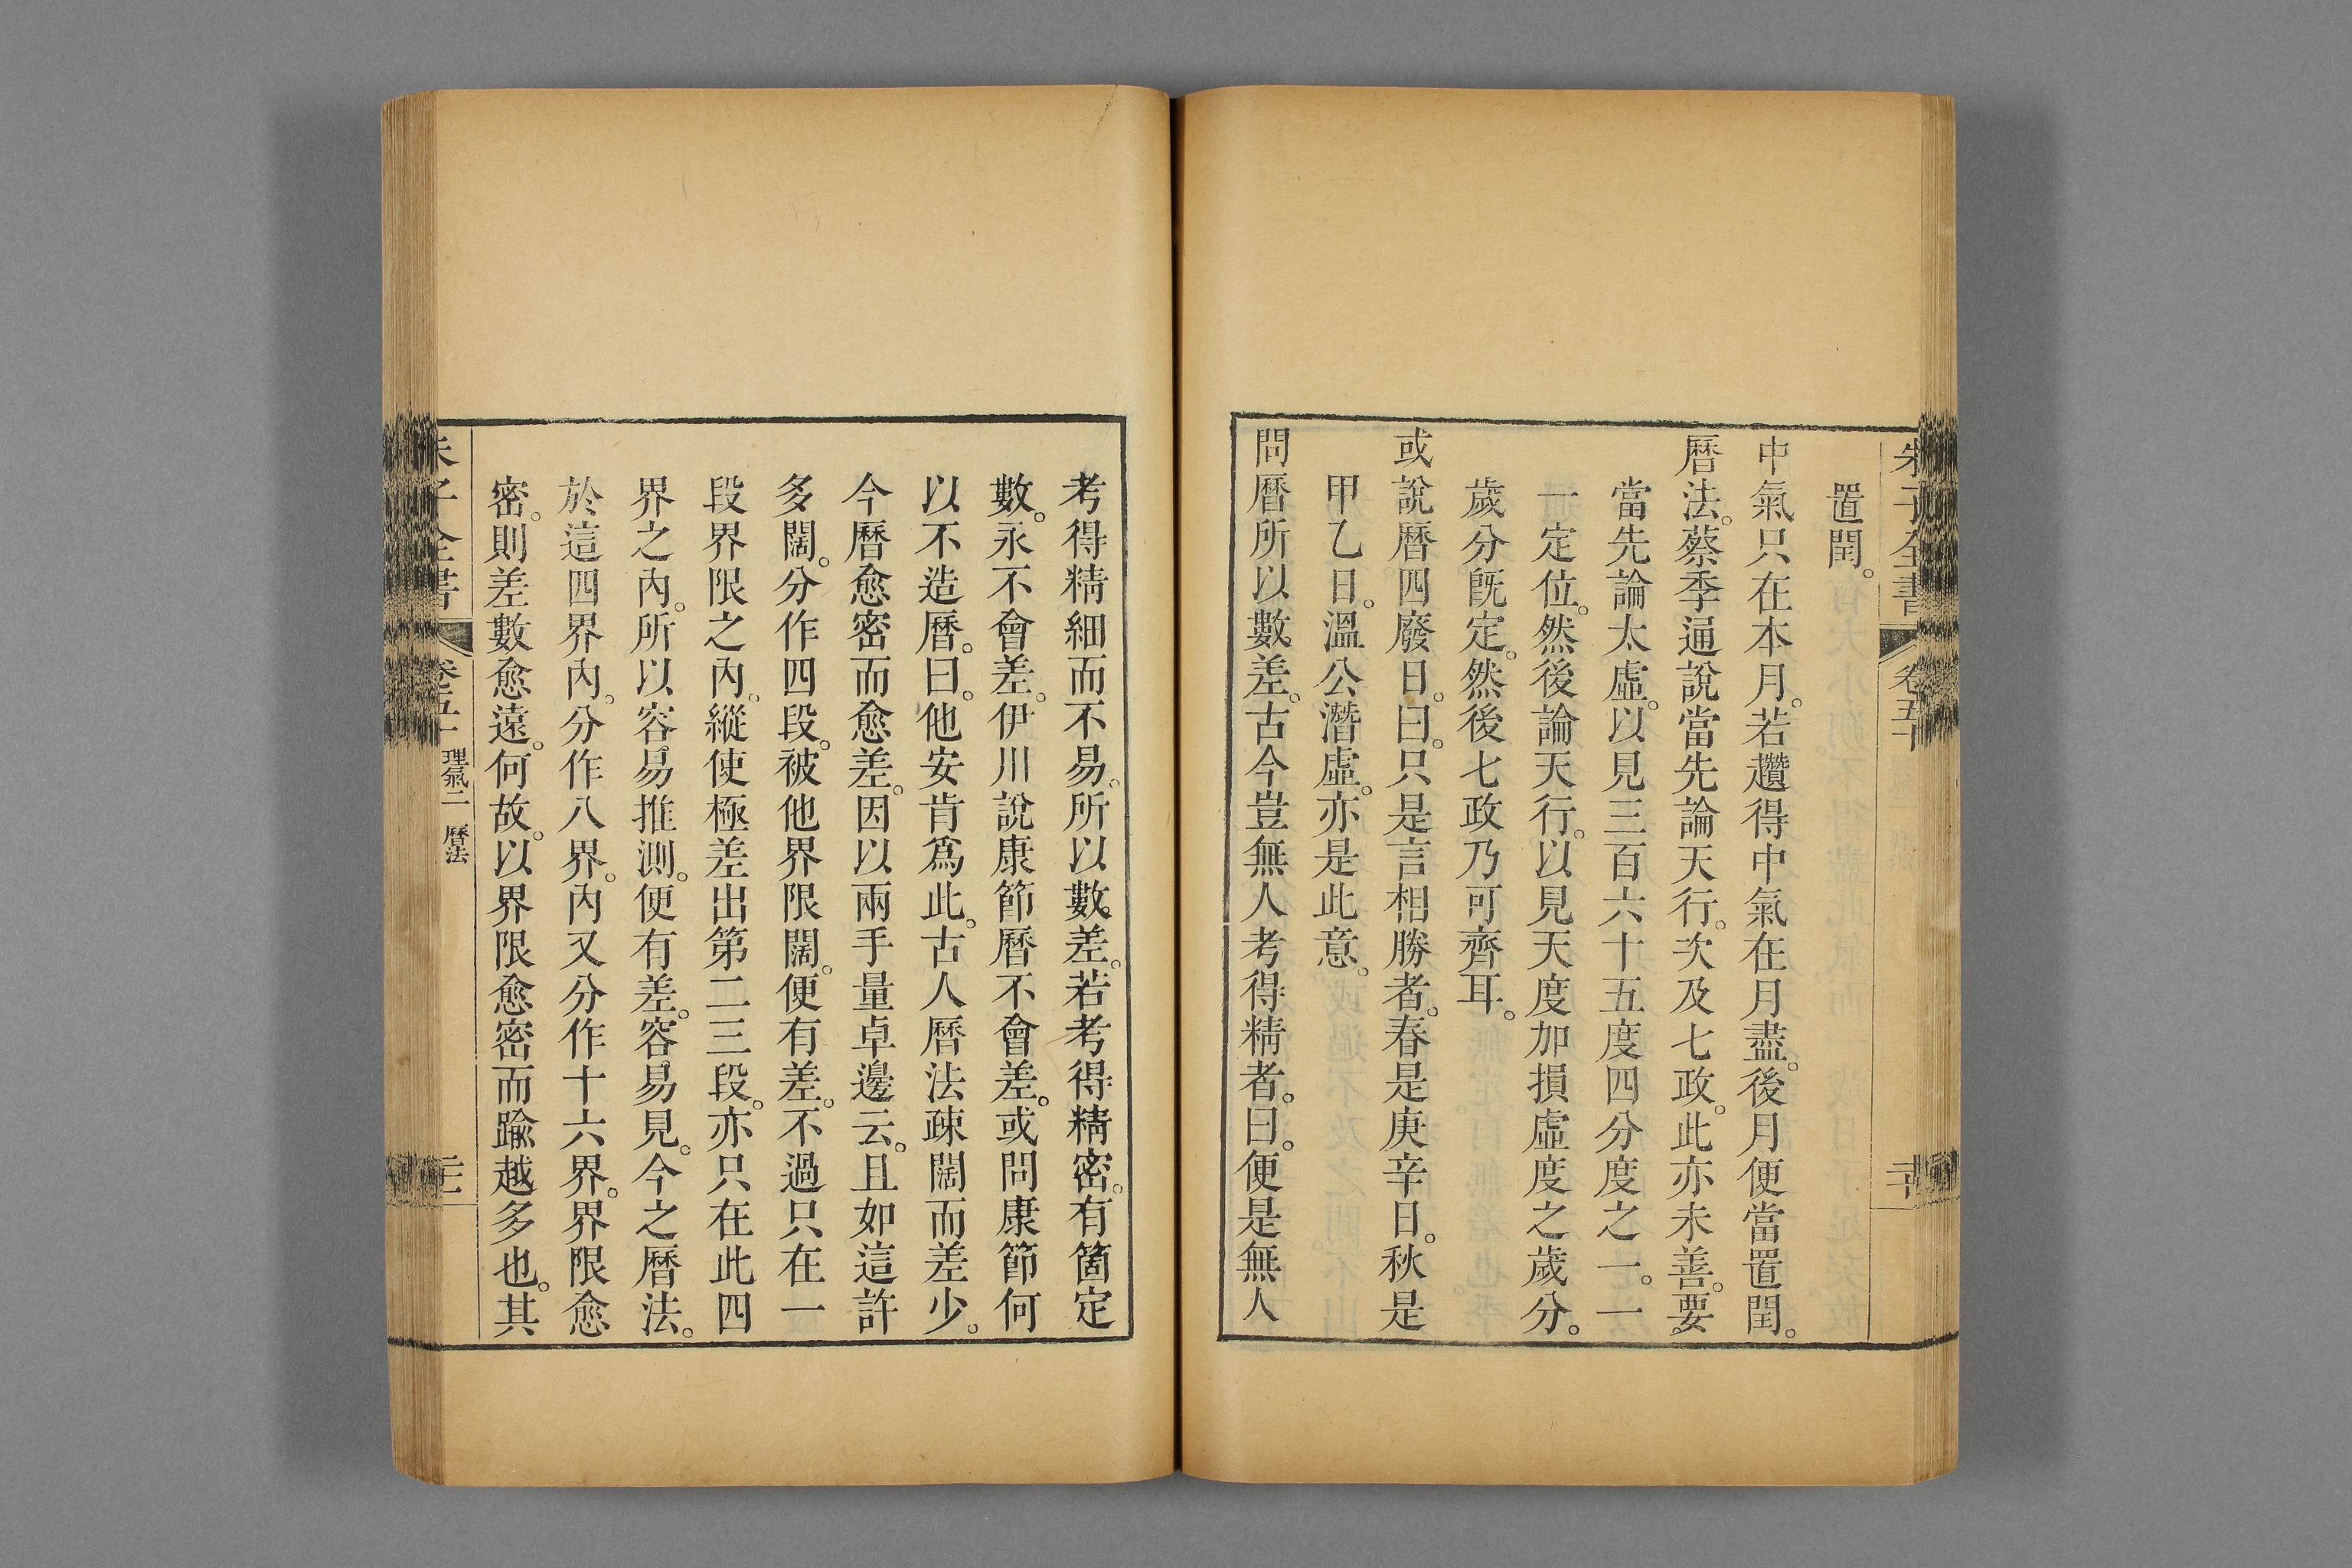 朱子全書 卷五十 二十
置閏。
中氣只在本月。若趲得中氣在月盡。後月便當置閏。
曆法。蔡季通說當先論天行。次及七政。此亦未善。要
當先論太虛。以見三百六十五度四分度之一。一
一定位。然後論天行。以見天度加損虛度之歲分。
歲分既定。然後七政乃可齊耳。
或說曆四廢日。曰。只是言相勝者。春是庚辛日。秋是
甲乙日。溫公潛虛。亦是此意。
問曆所以數差。古今豈無人考得精者。曰。便是無人
考得精細而不易。所以數差。若考得精密。有箇定
數。永不會差。伊川說康節曆不會差。或問康節何
以不造曆。曰。他安肯爲此。古人曆法疎闊而差少。
今曆愈密而愈差。因以兩手量卓邊云。且如這許
多闊。分作四段。被他界限闊。便有差。不過只在一
段界限之內。縱使極差出第二三段。亦只在此四
界之內。所以容易推測。便有差。容易見。今之曆法。
於這四界內。分作八界。內又分作十六界。界限愈
密。則差數愈遠。何故。以界限愈密而踰越多也。其
朱子全書 卷五十 理氣二 曆法